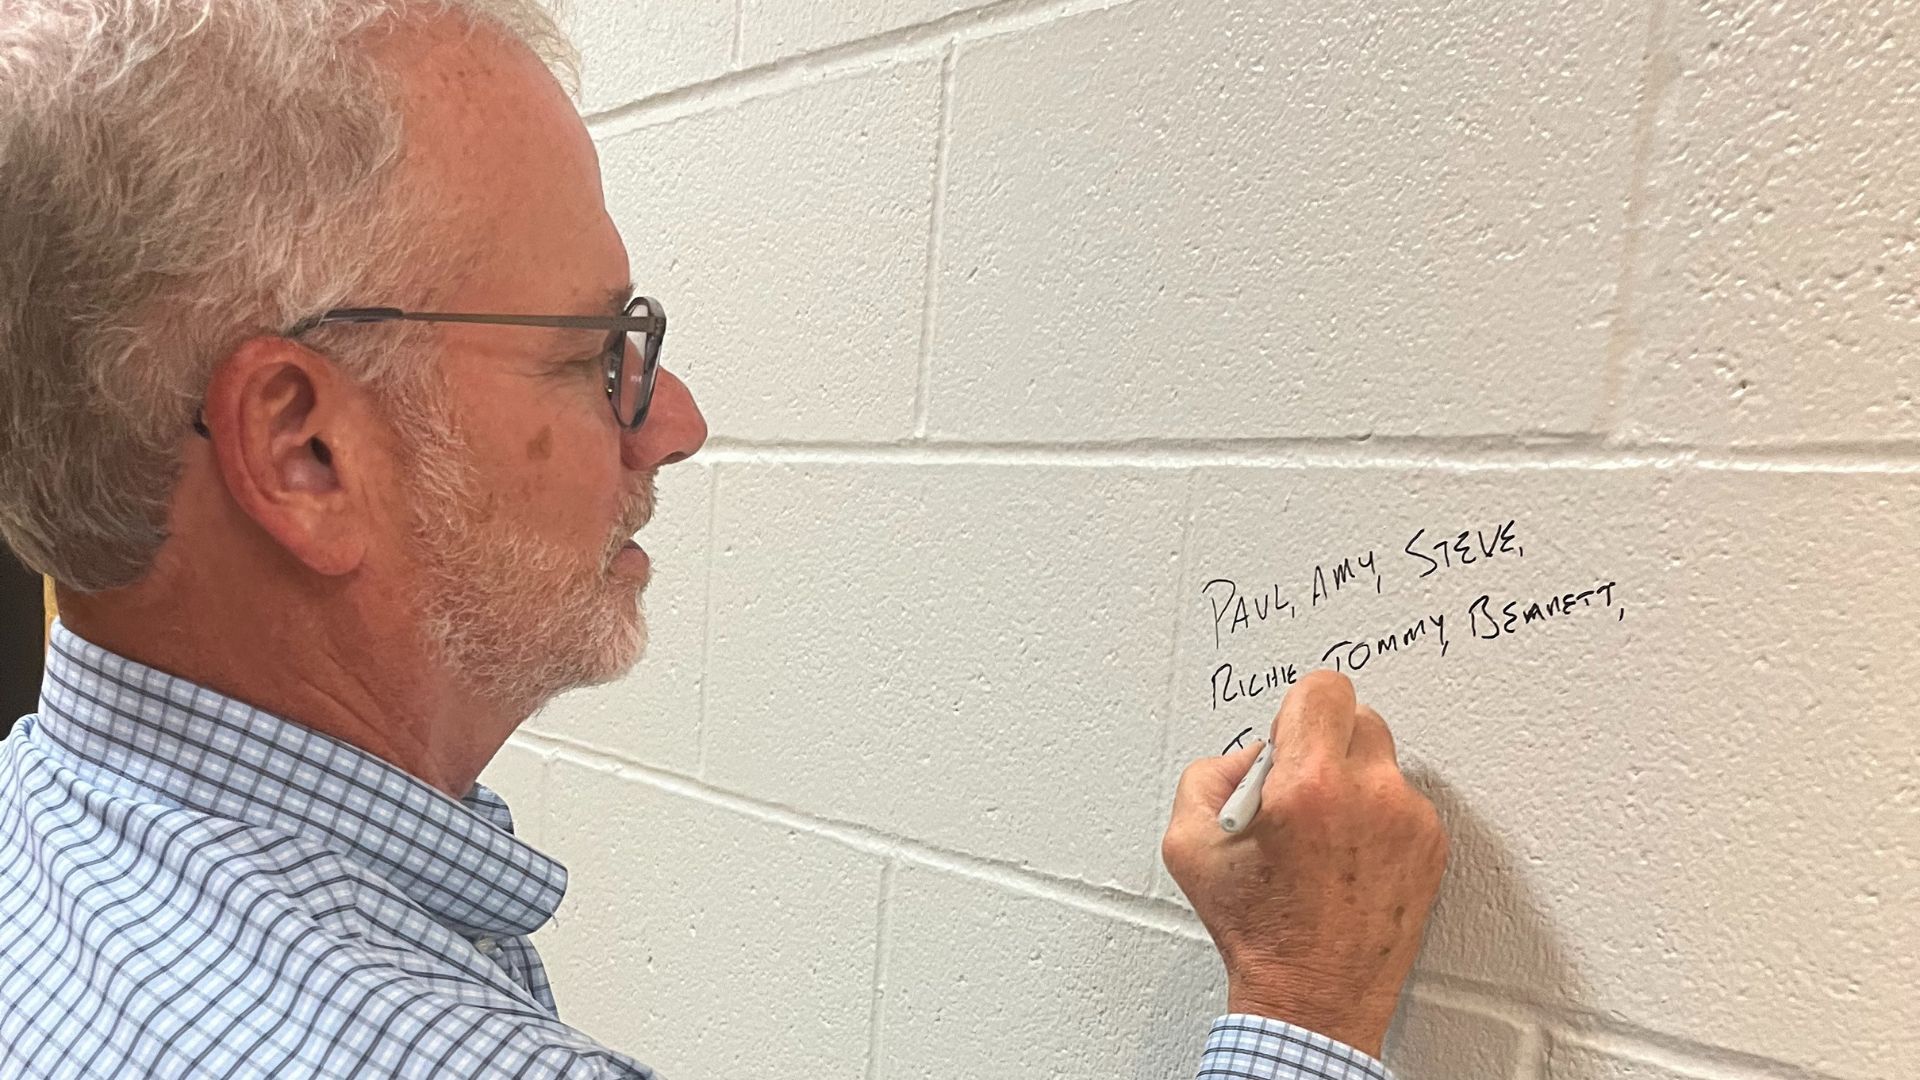 PAUL, AMY, STEVE,
RICHIE TOMMY, BENNETT,